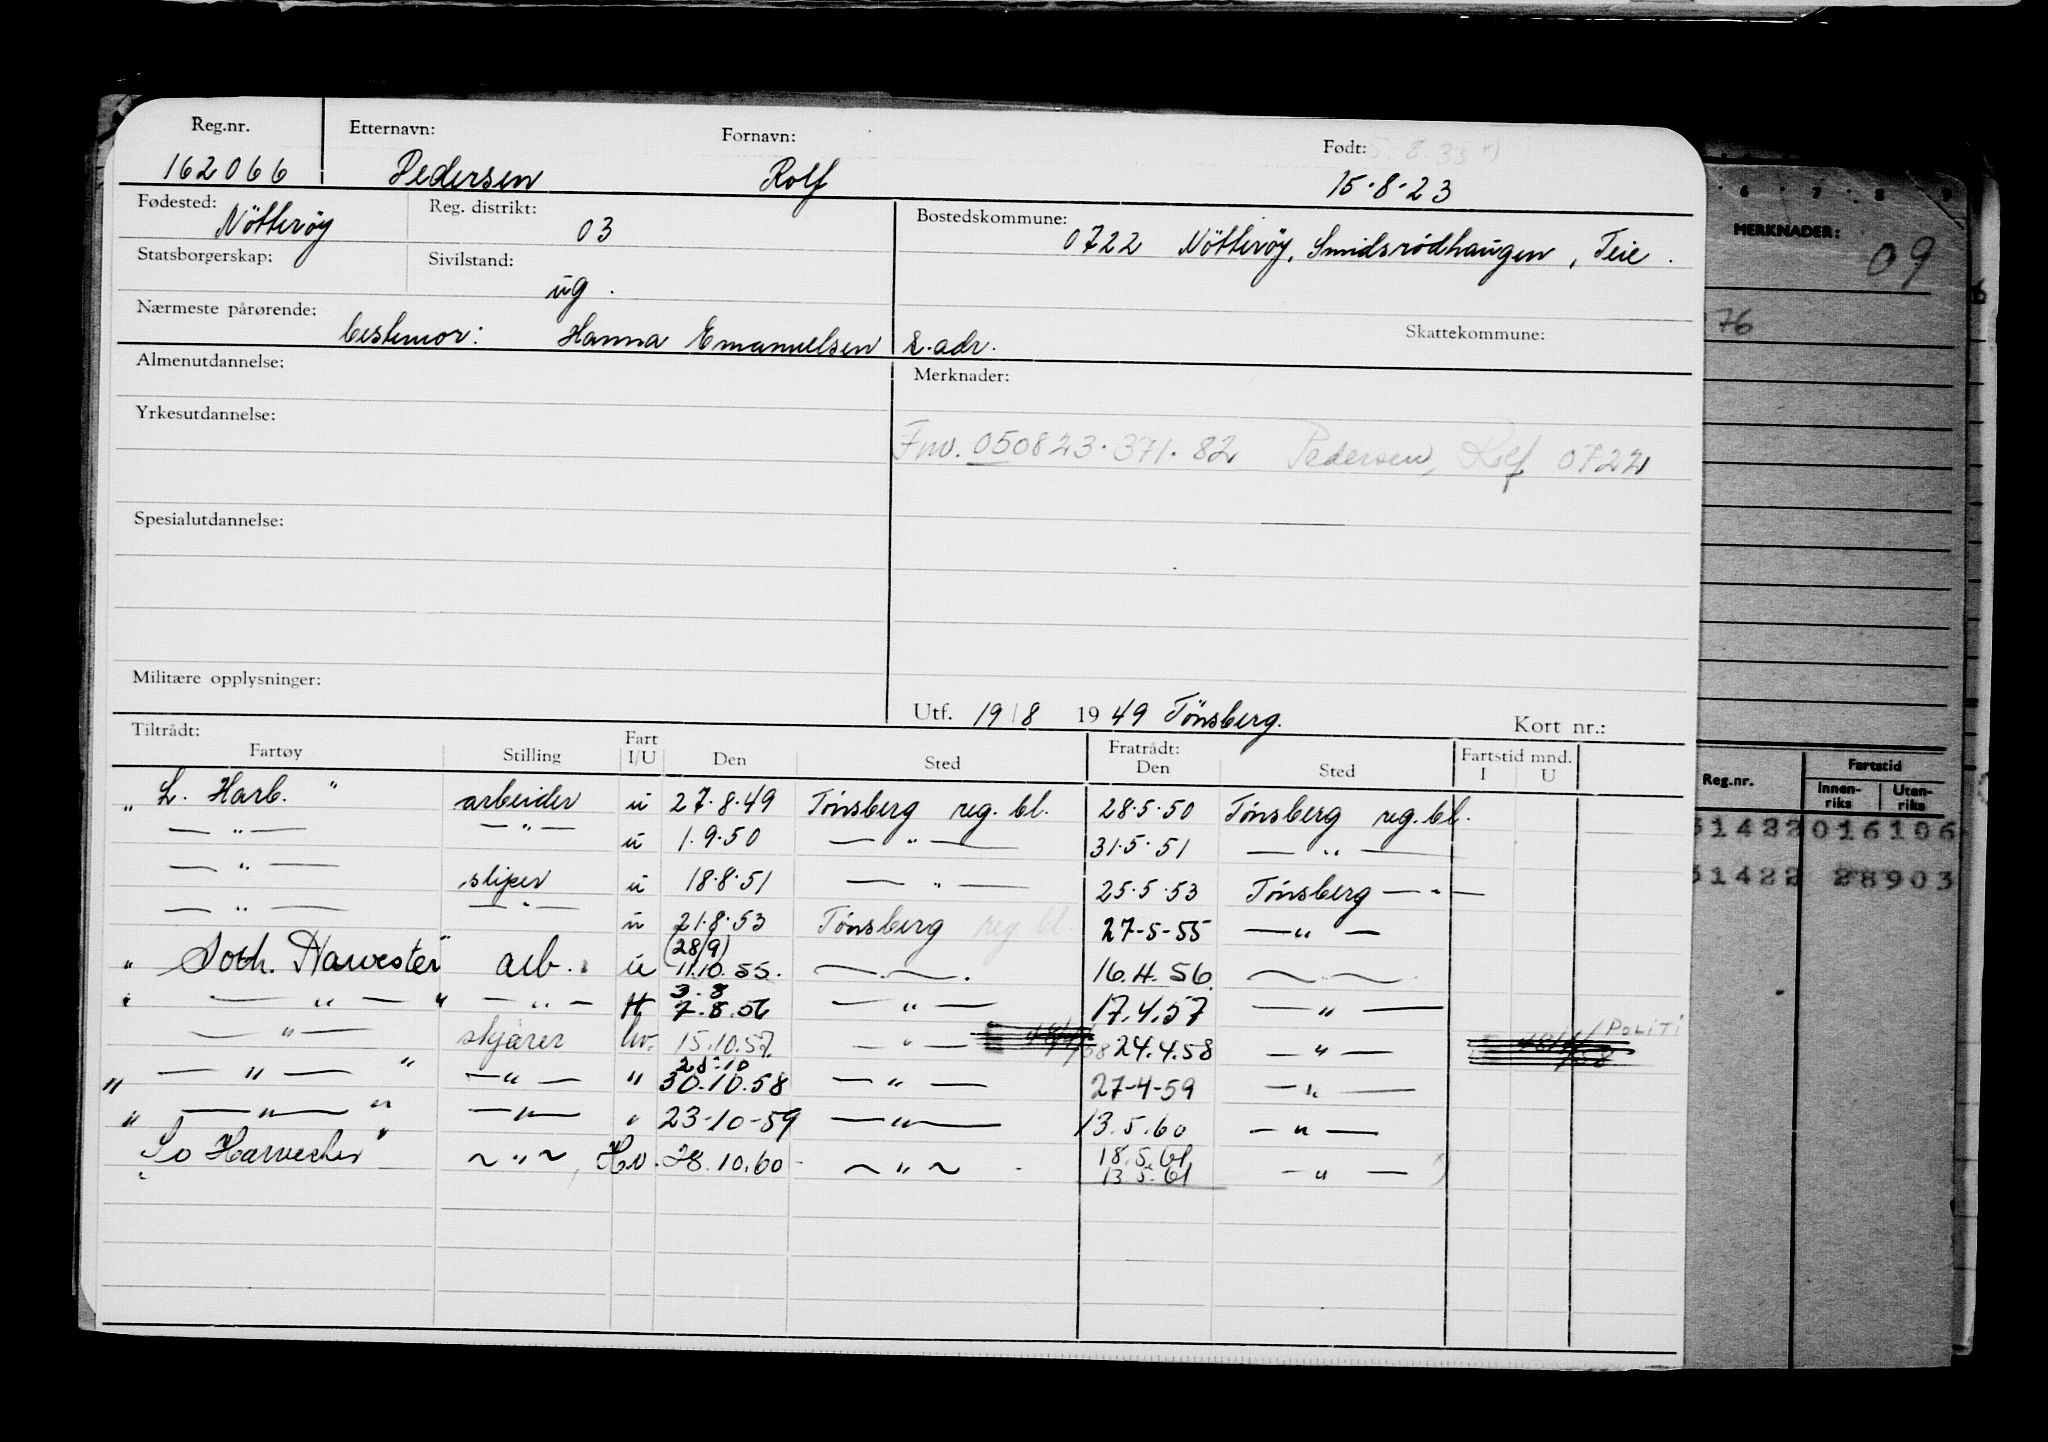 Reg.nr. Etternavn: Fornavn: Født: 5.8.33
162066 Pedersen Rolf 15·8·23
Fødested: Nötteröy Reg. distrikt: 03 Bostedskommune: 0722 Nötteröy, Smidsrödhaugen, Teie.
Statsborgerskap: Sivilstand: ug.
Nærmeste pårørende: bestemor: Hanna Emanuelsen s.adr. Skattekommune:
Almenutdannelse: Merknader:
Yrkesutdannelse:
Fnr. 050823·371·82 Pedersen, Rolf 0722
Spesialutdannelse:
Militære opplysninger:
Utf. 19/8 1949 Tönsberg. Kort nr.:
Tiltrådt: Fratrådt:
Fartøy Stilling Fart I/U Den Sted Den Sted Fartstid mnd. I U
" L. Harb. " arbeider u 27·8·49 Tönsberg reg. bl. 28·5·50 Tönsberg reg. bl.
— " — — " — u 1·9·50 — " — 31·5·51 — " —
— " — sliper u 18·8·51 — " — 25·5·53 Tönsberg — " —
— " — — " — u 21·8·53 Tönsberg reg bl. 27-5-55 — " —
(28/9)
" Soth. Harvester" arb. u 11.10.55. — . — . 16.4.56 — . —
3.8
" — " — " — " — H 7.8.56 — " — 17.4.57 — " —
— " — skjærer hv. 15.10.57. — " — 24.4.58 — " — POLITI
28·10
" — " — " — " — " 30.10.58 — " — 27-4-59 — " —
" — " — " — " — " 23-10-59 — " — 13.5.60 — " —
18.5.61
" So Harvester" ~ " ~ Hv. 28.10.60 ~ " ~ 13.5.61 — " —
6 7 8 9
MERKNADER:
09
76
Reg.nr. Fartstid
Innenriks Utenriks
31422 016106
31422 28903